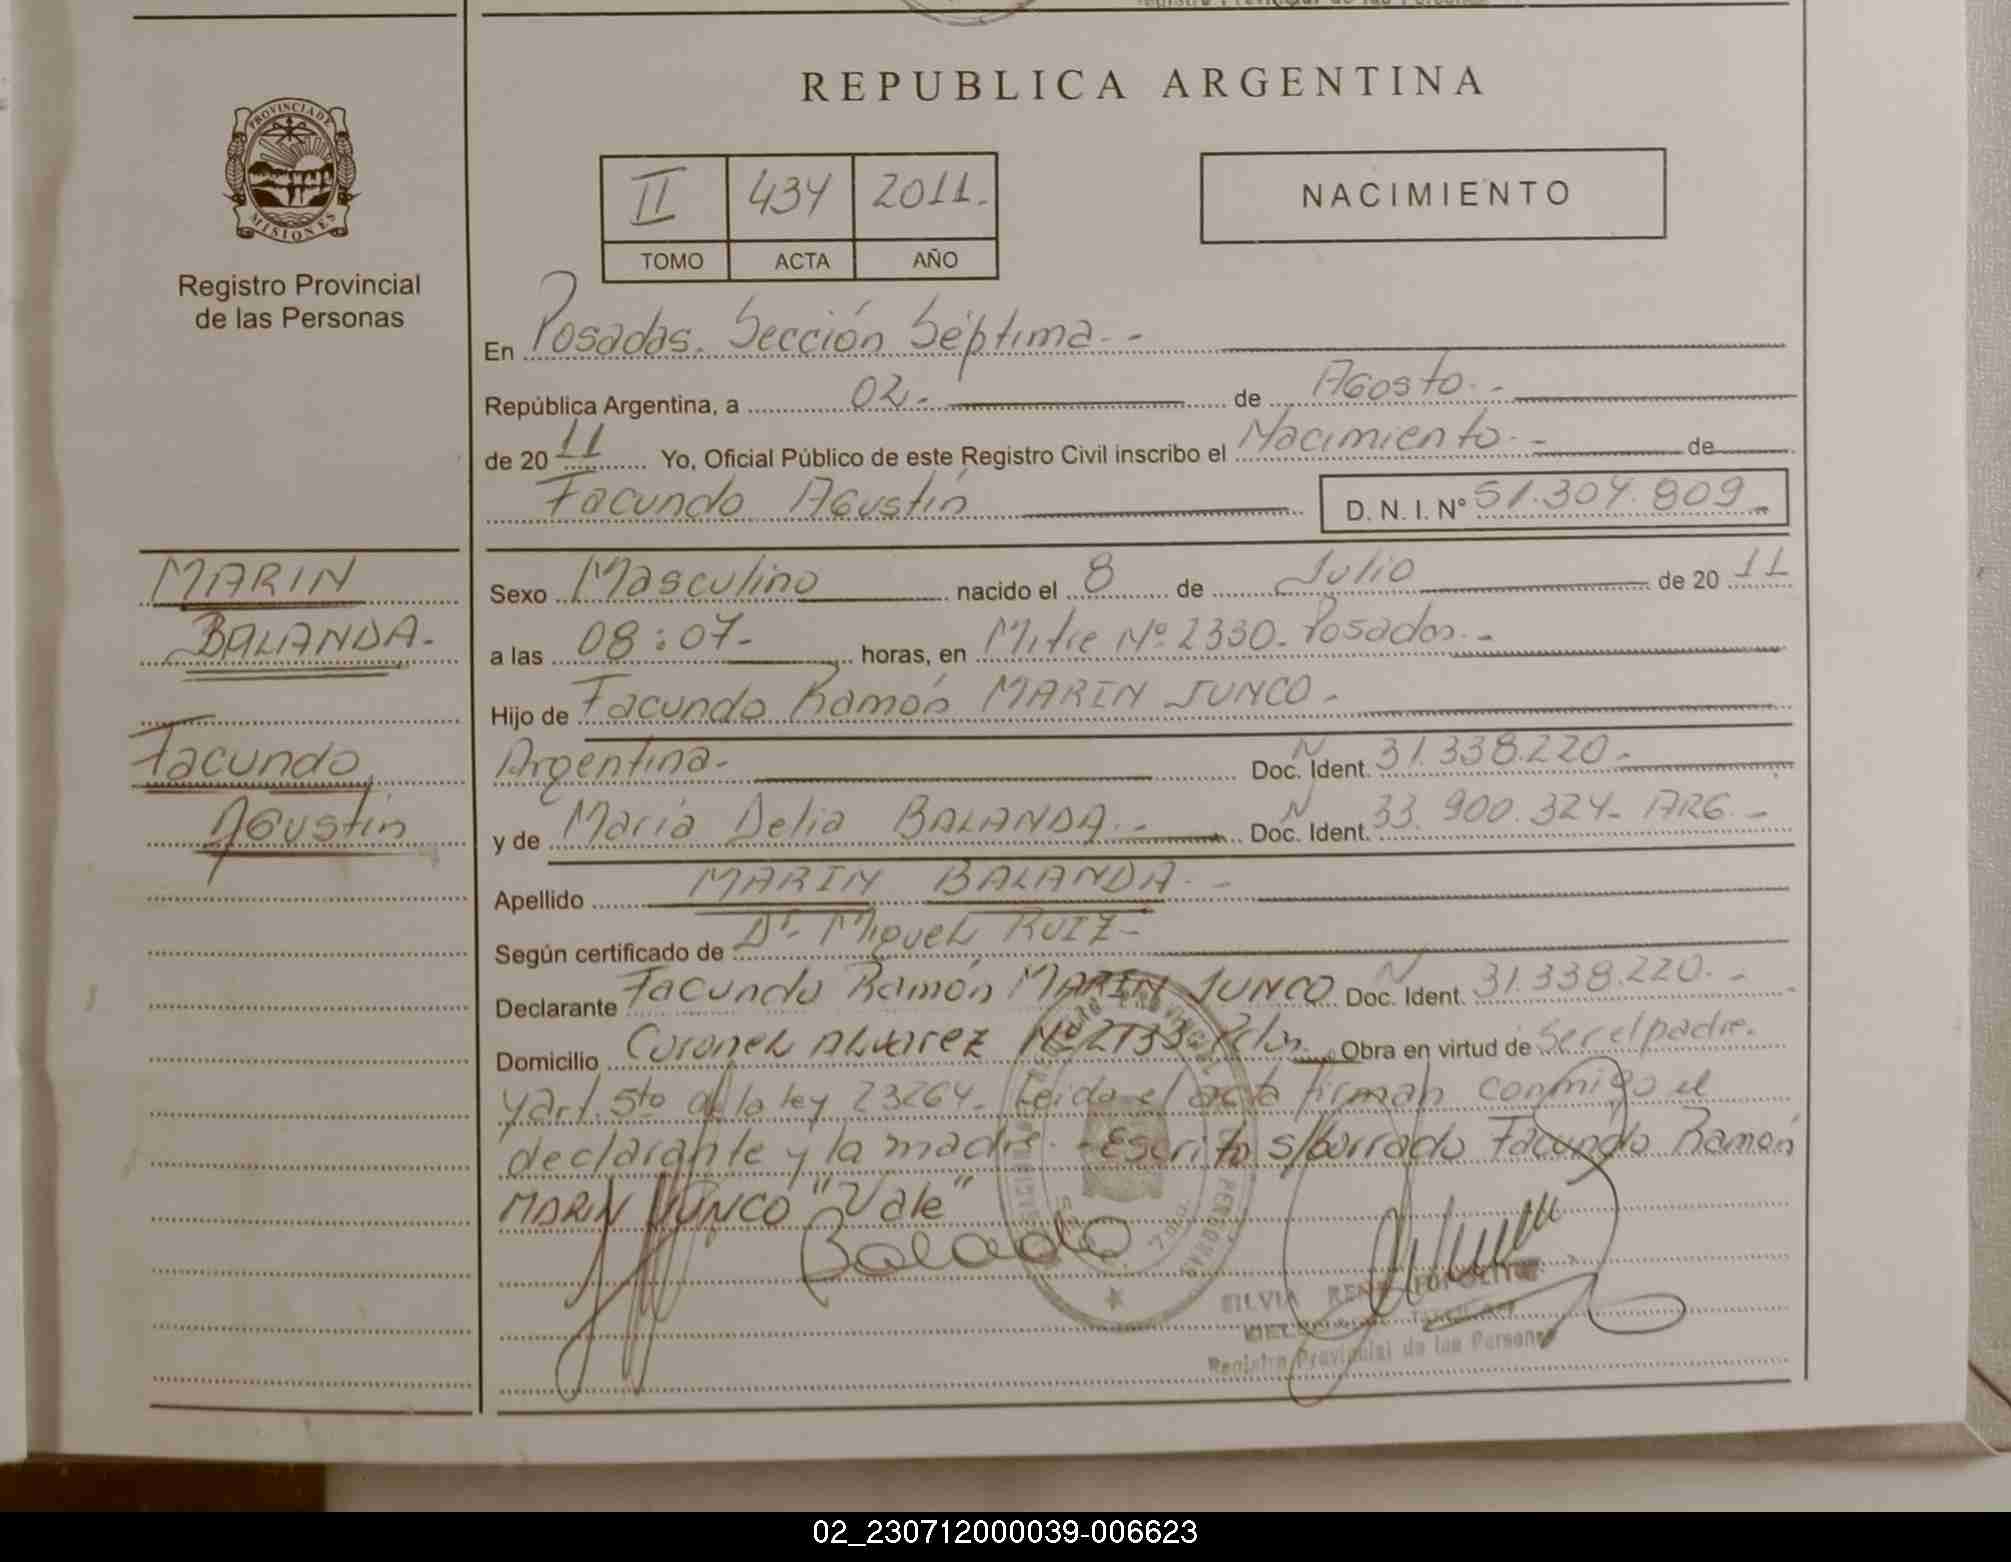 REPUBLICA ARGENTINA
PROVINCIA DE
MISIONES
Registro Provincial
de las Personas
II 434 2011.
TOMO ACTA AÑO
NACIMIENTO
En Posadas. Sección Séptima.-
República Argentina, a 02.- de Agosto.-
de 2011 Yo, Oficial Público de este Registro Civil inscribo el Nacimiento.- de
Facundo Agustín D. N. I. Nº 51.304.809.-
MARIN
BALANDA.-
Facundo
Agustín
Sexo Masculino nacido el 8 de Julio de 2011
a las 08:07.- horas, en Mitre Nº 2330. Posadas.-
Hijo de Facundo Ramón MARIN JUNCO.-
Argentina.- Doc. Ident. N 31.338.220.-
y de María Delia BALANDA.- Doc. Ident. N 33.900.324. ARG.-
Apellido MARIN BALANDA.-
Según certificado de Dr. Miguel RUIZ.-
Declarante Facundo Ramón MARIN JUNCO Doc. Ident. N 31.338.220.-
Domicilio Coronel Alvarez Nº 2133 Pdas. Obra en virtud de Ser el padre.
y art. 5to de la ley 23264. Leida el acta firman conmigo el
declarante y la madre.- Escrito s/borrado Facundo Ramón
MARIN JUNCO "Vale"
Balanda
SILVIA
Registro Provincial de las Personas
02_230712000039-006623